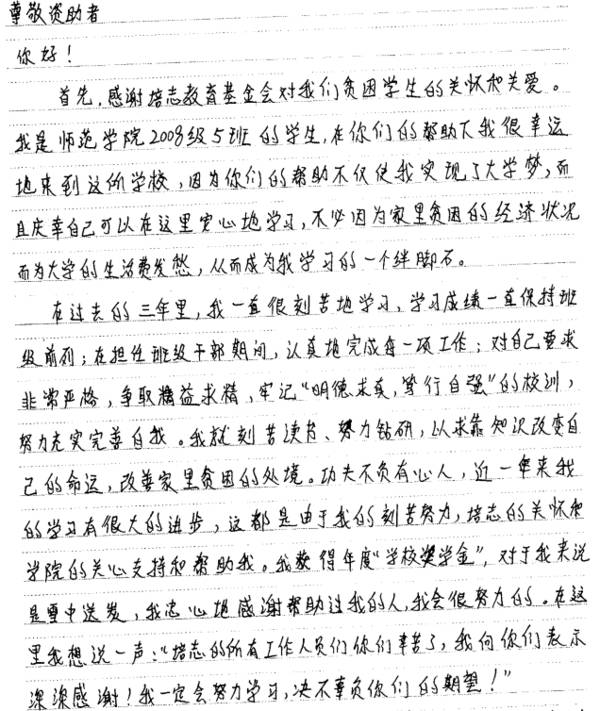 尊敬资助者
你好！
首先，感谢培志教育基金会对我们贫困学生的关怀和关爱。
我是师范学院2008级5班的学生，在你们的帮助下我很幸运
地来到这所学校，因为你们的帮助不仅使我实现了大学梦，而
且庆幸自己可以在这里安心地学习，不必因为家里贫困的经济状况
而为大学的生活费发愁，从而成为我学习的一个绊脚石。
在过去的三年里，我一直很刻苦地学习，学习成绩一直保持班
级前列；在担任班级干部期间，认真地完成每一项工作；对自己要求
非常严格，争取精益求精，牢记“明德求真，笃行自强”的校训，
努力充实完善自我。我就刻苦读书、努力钻研，以求靠知识改变自
己的命运，改善家里贫困的处境。功夫不负有心人，近一年来我
的学习有很大的进步，这都是由于我的刻苦努力，培志的关怀和
学院的关心支持和帮助我。我获得年度“学校奖学金”，对于我来说
是雪中送炭，我忠心地感谢帮助过我的人，我会很努力的。在这
里我想说一声：“培志的所有工作人员们你们辛苦了，我向你们表示
深深感谢！我一定会努力学习，决不辜负你们的期望！”